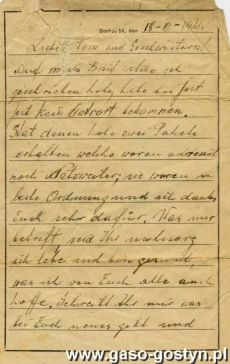 Dachau 3K, den 18-10-1941
Liebe und Geschwistern.
Auf Brief ich
geschrieben habe, habe bis fast
jetzt kein Antwort bekommen.
Hat denen habe zwei Pakete
erhalten welche waren adressiert
noch, sie waren in
beste Ordnung und ich danke
Euch sehr dafür, Was mir
betrift, Ihr
ich lebe und bin gesund,
was ich von Euch alle auch
hoffe, Schreibt Ihr mir was
bei Euch neues gebt und
www.gaso-gostyn.pl